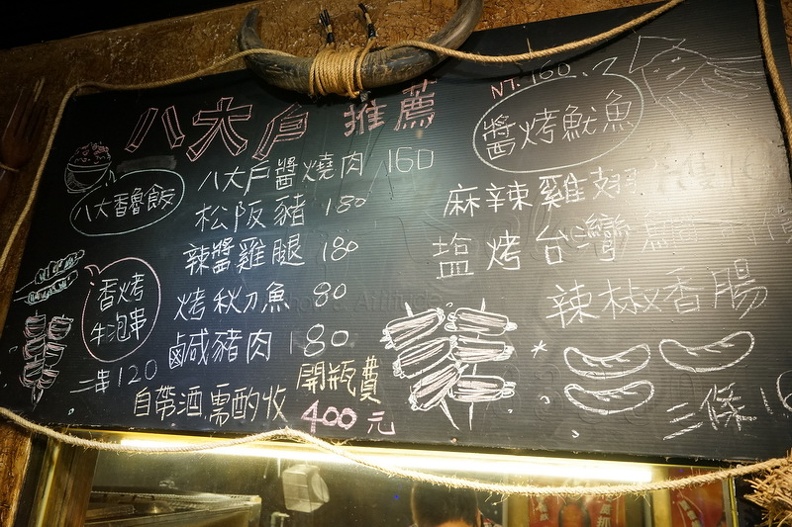 八大戶 推薦
NT.160
醬烤魷魚
八大香魯飯
八大戶醬燒肉 160
松阪豬 180
辣醬雞腿 180
烤秋刀魚 80
鹹豬肉 180
香烤
牛泡串
二串120
自帶酒需酌收 開瓶費
400元
麻辣雞翅
塩烤台灣
辣椒香腸
三條